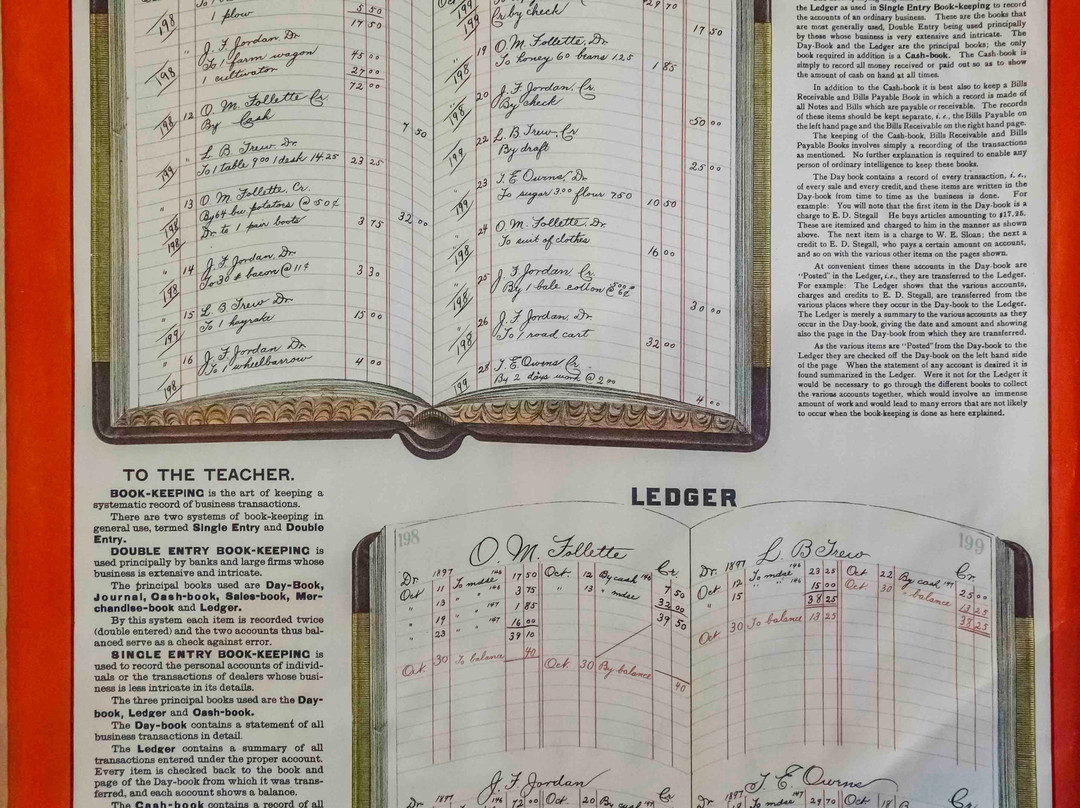 1 plow 5 50
198 17 50
" J. F. Jordan, Dr.
198 To 1 farm wagon 45 00
1 cultivator 27 00
72 00
198 12 O. M. Follette Cr.
By Cash 7 50
" L. B. Trew Dr.
199 To 1 table 9 00 1 desk 14.25 23 25
13 O. M. Follette, Cr.
198 By 64 bu potatoes @ 50¢ 32 00
198 Dr. to 1 pair boots 3 75
" 14 J. F. Jordan, Dr.
198 To 30 # bacon @ 11¢ 3 30
" 15 L. B. Trew Dr.
199 To 1 hayrake 15 00
" 16 J. F. Jordan Dr.
198 To 1 wheelbarrow 4 00
199 29 70
199 Cr. by check 17 50
" 19 O. M. Follette, Dr.
198 To honey 60 beans 1.25 1 85
" 20 J. F. Jordan, Cr.
198 By check 50 00
" 22 L. B. Trew, Cr
199 By draft 25 00
" 23 J. E. Owens, Dr.
199 To sugar 3 00 flour 7 50 10 50
" 24 O. M. Follette, Dr.
198 To suit of clothes 16 00
" 25 J. F. Jordan, Cr.
198 By 1 bale cotton @ 500# 6¢ 30 00
" 26 J. F. Jordan, Dr.
198 To 1 road cart 32 00
" 28 J. E. Owens, Cr.
199 By 2 days work @ 2 00 4 00
the Ledger as used in Single Entry Book-keeping to record
the accounts of an ordinary business. These are the books that
are most generally used, Double Entry being used principally
by those whose business is very extensive and intricate. The
Day-Book and the Ledger are the principal books; the only
book required in addition is a Cash-book. The Cash-book is
simply to record all money received or paid out so as to show
the amount of cash on hand at all times.
In addition to the Cash-book it is best also to keep a Bills
Receivable and Bills Payable Book in which a record is made of
all Notes and Bills which are payable or receivable. The records
of these items should be kept separate, i. e., the Bills Payable on
the left hand page and the Bills Receivable on the right hand page.
The keeping of the Cash-book, Bills Receivable and Bills
Payable Books involves simply a recording of the transactions
as mentioned. No further explanation is required to enable any
person of ordinary intelligence to keep these books.
The Day book contains a record of every transaction, i. e.,
of every sale and every credit, and these items are written in the
Day-book from time to time as the business is done. For
example: You will note that the first item in the Day-book is a
charge to E. D. Stegall He buys articles amounting to $17.25.
These are itemized and charged to him in the manner as shown
above. The next item is a charge to W. E. Sloan; the next a
credit to E. D. Stegall, who pays a certain amount on account,
and so on with the various other items on the pages shown.
At convenient times these accounts in the Day-book are
"Posted" in the Ledger, i. e., they are transferred to the Ledger.
For example: The Ledger shows that the various accounts,
charges and credits to E. D. Stegall, are transferred from the
various places where they occur in the Day-book to the Ledger.
The Ledger is merely a summary to the various accounts as they
occur in the Day-book, giving the date and amount and showing
also the page in the Day-book from which they are transferred.
As the various items are "Posted" from the Day-book to the
Ledger they are checked off the Day-book on the left hand side
of the page When the statement of any account is desired it is
found summarized in the Ledger. Were it not for the Ledger it
would be necessary to go through the different books to collect
the various accounts together, which would involve an immense
amount of work and would lead to many errors that are not likely
to occur when the book-keeping is done as here explained.
TO THE TEACHER.
BOOK-KEEPING is the art of keeping a
systematic record of business transactions.
There are two systems of book-keeping in
general use, termed Single Entry and Double
Entry.
DOUBLE ENTRY BOOK-KEEPING is
used principally by banks and large firms whose
business is extensive and intricate.
The principal books used are Day-Book,
Journal, Cash-book, Sales-book, Mer-
chandise-book and Ledger.
By this system each item is recorded twice
(double entered) and the two accounts thus bal-
anced serve as a check against error.
SINGLE ENTRY BOOK-KEEPING is
used to record the personal accounts of individ-
uals or the transactions of dealers whose busi-
ness is less intricate in its details.
The three principal books used are the Day-
book, Ledger and Cash-book.
The Day-book contains a statement of all
business transactions in detail.
The Ledger contains a summary of all
transactions entered under the proper account.
Every item is checked back to the book and
page of the Day-book from which it was trans-
ferred, and each account shows a balance.
The Cash-book contains a record of all
LEDGER
198
O. M. Follette
Dr. 1897 Cr.
Oct 11 To mdse 146 17 50 Oct. 12 By cash 146 7 50
" 13 " " 146 3 75 " 13 " mdse 32 00
" 19 " " 147 1 85 39 50
" 23 " " 147 16 00
39 10
Oct. 30 To balance 40 Oct 30 By balance 40
199
L. B Trew
Dr. 1897 Cr.
Oct 12 To mdse 146 23 25 Oct 22 By cash 147 25 00
" 15 " " 146 15 00 Oct 30 " balance 13 25
38 25 38 25
Oct 30 To balance 13 25
J. F. Jordan
Dr. 1897 146 72 00 Oct. 20 By cash 147 Cr.
J. E. Owens
Dr. 1897 To mdse 147 29 70 Oct 18 Cr.